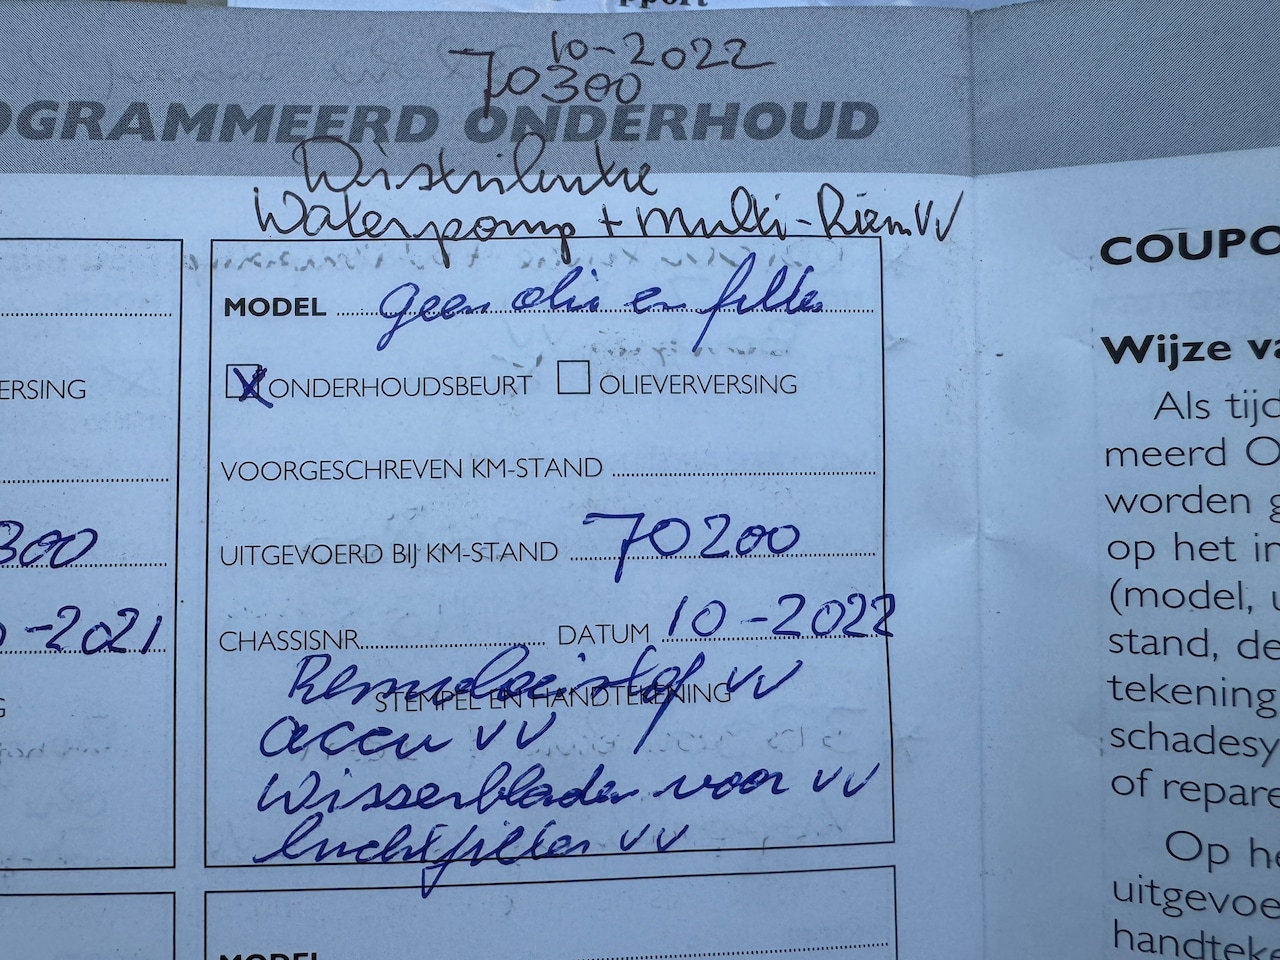 pport
10-2022
70300
OGRAMMEERD ONDERHOUD
Distributie
Waterpomp + Multi-Riem VV
MODEL geen olie en filter
ERSING
X ONDERHOUDSBEURT OLIEVERVERSING
VOORGESCHREVEN KM-STAND
300
UITGEVOERD BIJ KM-STAND 70200
-2021
CHASSISNR. DATUM 10-2022
Remvloeistof VV
STEMPEL EN HANDTEKENING
G
accu VV
Wisserbladen voor VV
luchtfilter VV
MODEL
COUPO
Wijze va
Als tijd
meerd O
worden g
op het in
(model, u
stand, de
tekening
schadesy
of repare
Op he
uitgevoe
handteke